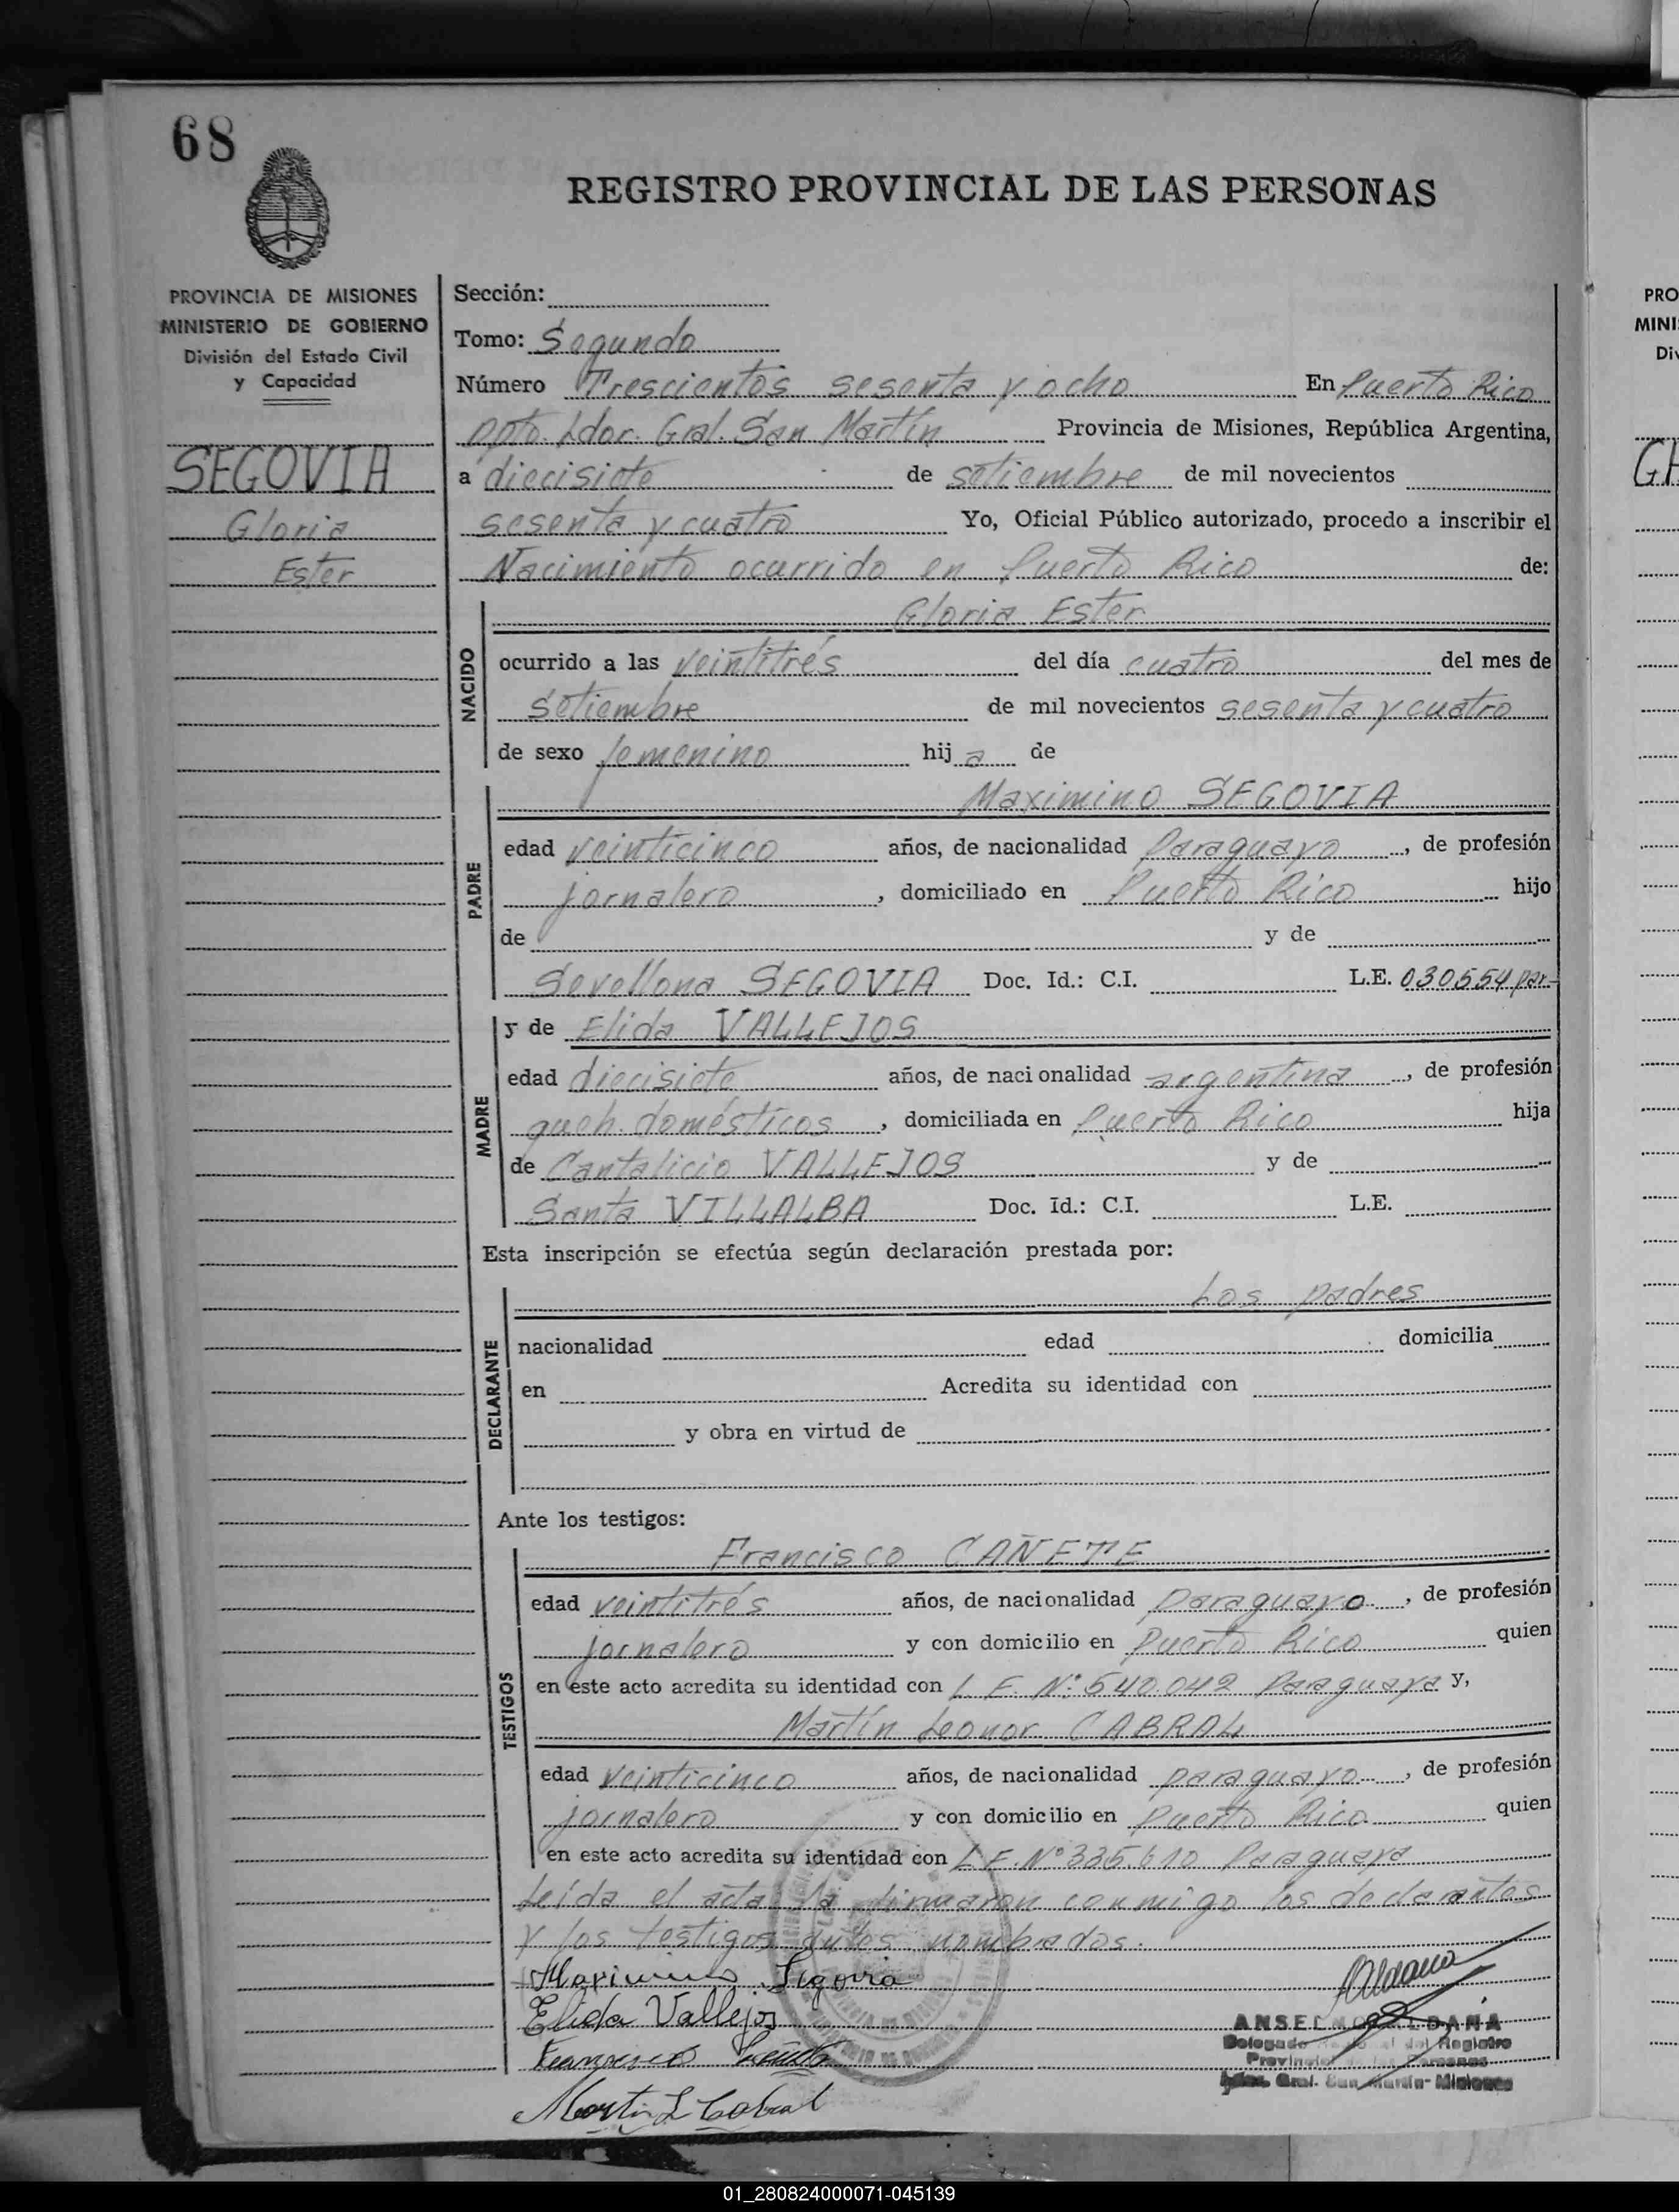 68
REGISTRO PROVINCIAL DE LAS PERSONAS
PROVINCIA DE MISIONES
MINISTERIO DE GOBIERNO
División del Estado Civil
y Capacidad
SEGOVIA
Gloria
Ester
Sección:
Tomo: Segundo
Número Trescientos sesenta y ocho En Puerto Rico
Dpto. Ldor. Gral. San Martín Provincia de Misiones, República Argentina,
a diecisiete de setiembre de mil novecientos
sesenta y cuatro Yo, Oficial Público autorizado, procedo a inscribir el
Nacimiento ocurrido en Puerto Rico de:
NACIDO
Gloria Ester
ocurrido a las veintitrés del día cuatro del mes de
setiembre de mil novecientos sesenta y cuatro
de sexo femenino hij a de
PADRE
Maximino SEGOVIA
edad veinticinco años, de nacionalidad Paraguayo, de profesión
jornalero, domiciliado en Puerto Rico hijo
de y de
SEGOVIA Doc. Id.: C.I. L.E. 030554 par-
MADRE
y de Elida VALLEJOS
edad diecisiete años, de nacionalidad argentina, de profesión
queh. domésticos, domiciliada en Puerto Rico hija
de Cantalicio VALLEJOS y de
Santa VILLALBA Doc. Id.: C.I. L.E.
Esta inscripción se efectúa según declaración prestada por:
DECLARANTE
Los padres
nacionalidad edad domicilia
en Acredita su identidad con
y obra en virtud de
Ante los testigos:
TESTIGOS
Francisco CAÑETE
edad veintitrés años, de nacionalidad Paraguayo, de profesión
jornalero y con domicilio en Puerto Rico quien
en este acto acredita su identidad con L E. Nº 540.042 Paraguaya y,
Martín Leonor CABRAL
edad veinticinco años, de nacionalidad paraguayo, de profesión
jornalero y con domicilio en Puerto Rico quien
en este acto acredita su identidad con L E. Nº 335.610 Paraguaya
Leída el acta la firmaron conmigo los declarantes
y los testigos antes nombrados.
Maximino Segovia
Elida Vallejos
Francisco Cañete
Martin L Cabral
Aldana
ANSELMO ALDANA
Delegado del Registro
Provincial de las Personas
Ldor. Gral. San Martín - Misiones
PRO
MINI
Div
GH
01_280824000071-045139